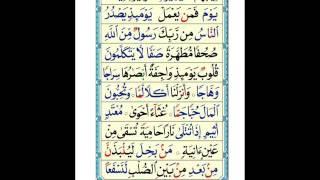 يَوْمَ فَمَنْ يَعْمَلْ يَوْمَئِذٍ يَصْدُرُ
النَّاسُ مِنْ رَبِّكَ رَسُولٌ مِنَ اللهِ
صُحُفًا مُطَهَّرَةً صَفًّا لَا يَتَكَلَّمُونَ
قُلُوبٌ يَوْمَئِذٍ وَاجِفَةٌ أَبْصَارُهَا سِرَاجًا
وَهَّاجًا وَأَنْزَلْنَا أَكْلًا لَمًّا وَتُحِبُّونَ
الْمَالَ حُبًّا جَمًّا غُثَاءً أَحْوَى مُعْتَدٍ
أَثِيمٍ إِذَا تُتْلَى نَارًا حَامِيَةً تُسْقَى مِنْ
عَيْنٍ اٰنِيَةٍ مَنْ بَخِلَ لَيُنْبَذَنَّ
مِنْ بَعْدِ مِنْ بَيْنِ الصُّلْبِ لَنَسْفَعًا